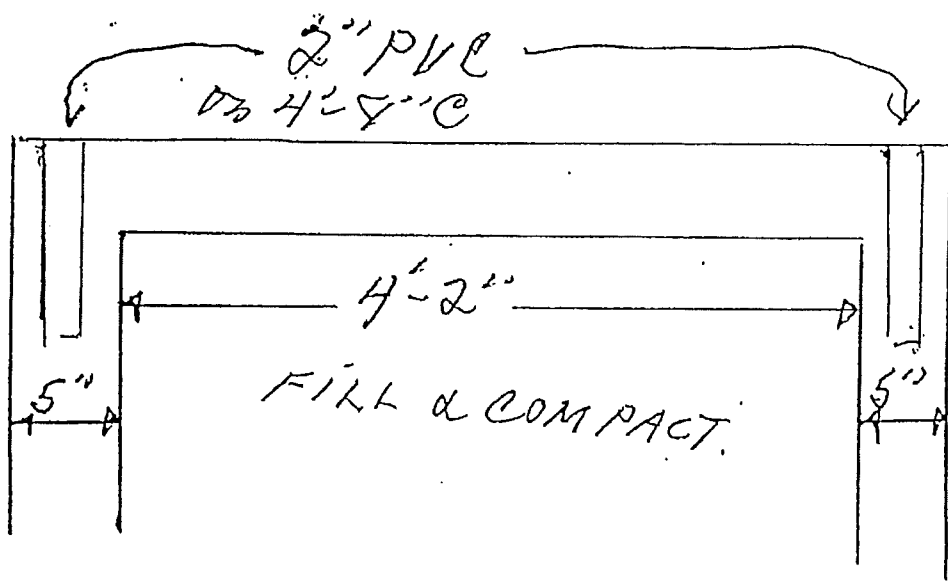 2" PVC
ON 4'-8" C
4'-2"
5"
FILL & COMPACT.
5"